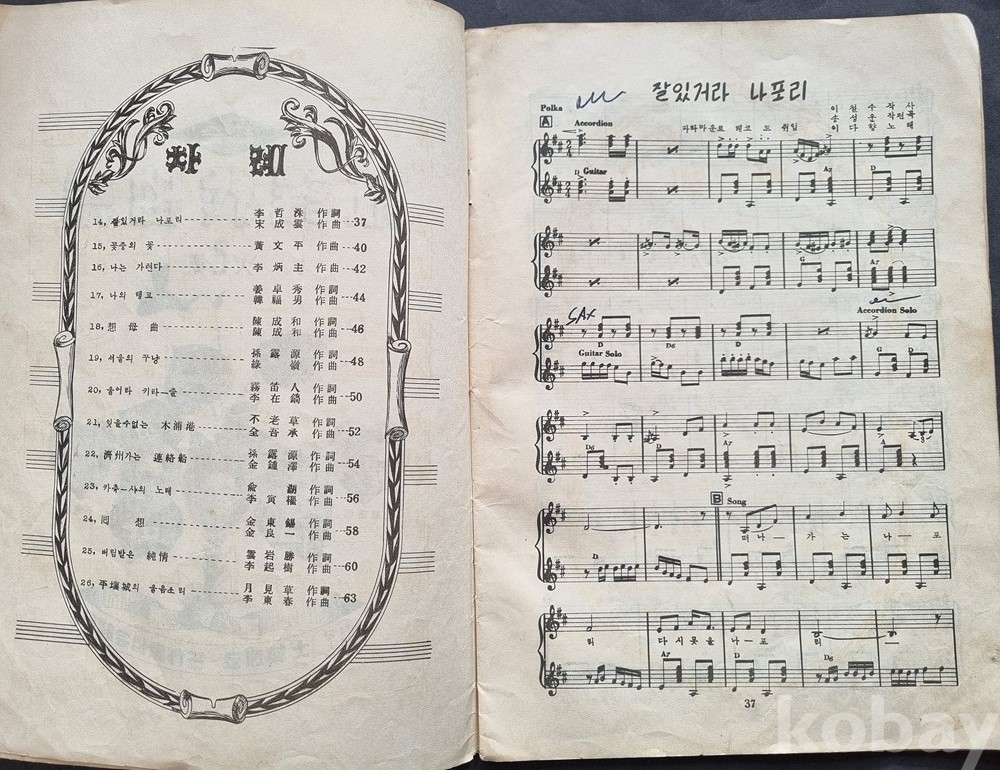 14, 잘있거라 나포리 李哲洙 作詞
宋成雲 作曲 37
15, 꽃중의 꽃 黃文平 作曲 40
16, 나는 가련다 李炳主 作曲 42
17, 나의 탱고 姜卓秀 作詞
韓福男 作曲 44
18, 想母曲 陳成和 作詞
陳成和 作曲 46
19, 서울의 꾸냥 孫露源 作詞
綠嶺 作曲 48
20, 울어라 키타—줄 霧笛人 作詞
李在鎬 作曲 50
21, 잊을수없는 木浦港 不老草 作詞
金吾承 作曲 52
22, 濟州가는 連絡船 孫露源 作詞
金鍾澤 作曲 54
23, 카츄—샤의 노래 湖 作詞
李寅權 作曲 56
24, 回想 金東錫 作詞
金良一 作曲 58
25, 버림받은 純情 雲岩勝 作詞
李起樹 作曲 60
26, 平壤城의 울음소리 月見草 作詞
李東春 作曲 63
잘있거라 나포리
이철수 작사
송성운 작편곡
이다향 노래
Polka
A Accordion
파라마운트 레코드 취입
D Guitar A7 D
G A7
SAX
Accordion Solo
D D
Guitar Solo G D
D6 D A7 D A
B Song
떠나—가는 나—포
D
리 다시못올 나—포 리
A7 D D6
37
kobay